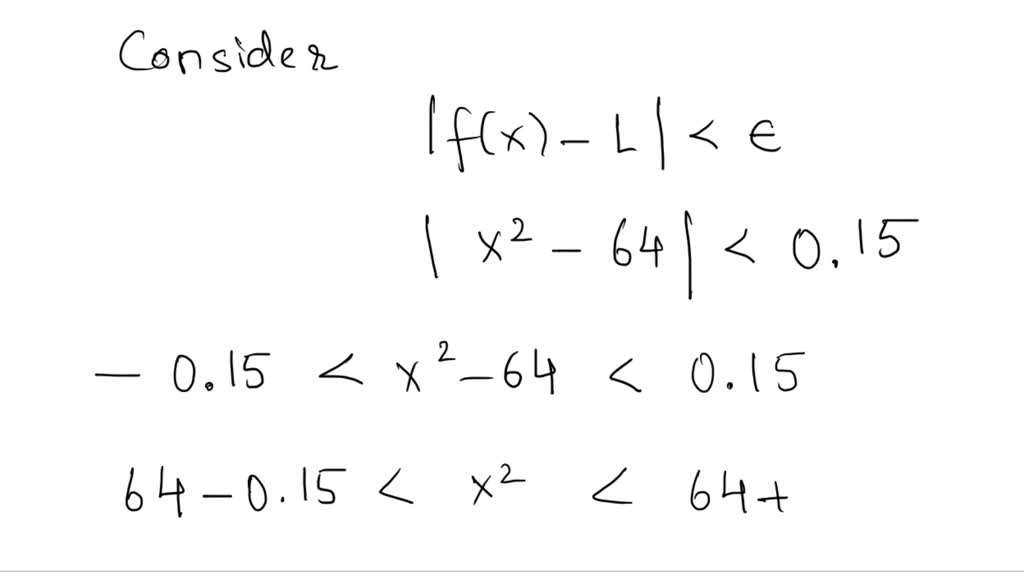 Consider
|f(x) - L| < ϵ
| x² - 64| < 0.15
- 0.15 < x² - 64 < 0.15
64 - 0.15 < x² < 64 +